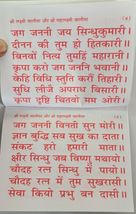 श्री लक्ष्मी चालीसा और श्री महालक्ष्मी चालीसा
जग जननी जय सिन्धुकुमारी
दीनन की तुम हो हितकारी।।
बिनवों नित्य तुमहिं महारानी
कृपा करो जग जननि भवानी।
केहि विधि स्तुति करौं तिहारी।
सुधि लीजै अपराध बिसारी।
कृपा दृष्टि चितवो मम ओरी।
श्री लक्ष्मी चालीसा और श्री महालक्ष्मी चालीसा
जग जननी विनती सुन मोरी।।
ज्ञान बुद्धि सब सुख का दाता।
संकट हरो हमारी माता।।
क्षीर सिन्धु जब विष्णु मथायो।
चौदह रत्न सिन्धु में पायो।।
चौदह रत्न में तुम सुखरासी।
सेवा कियो प्रभु बन दासी।।